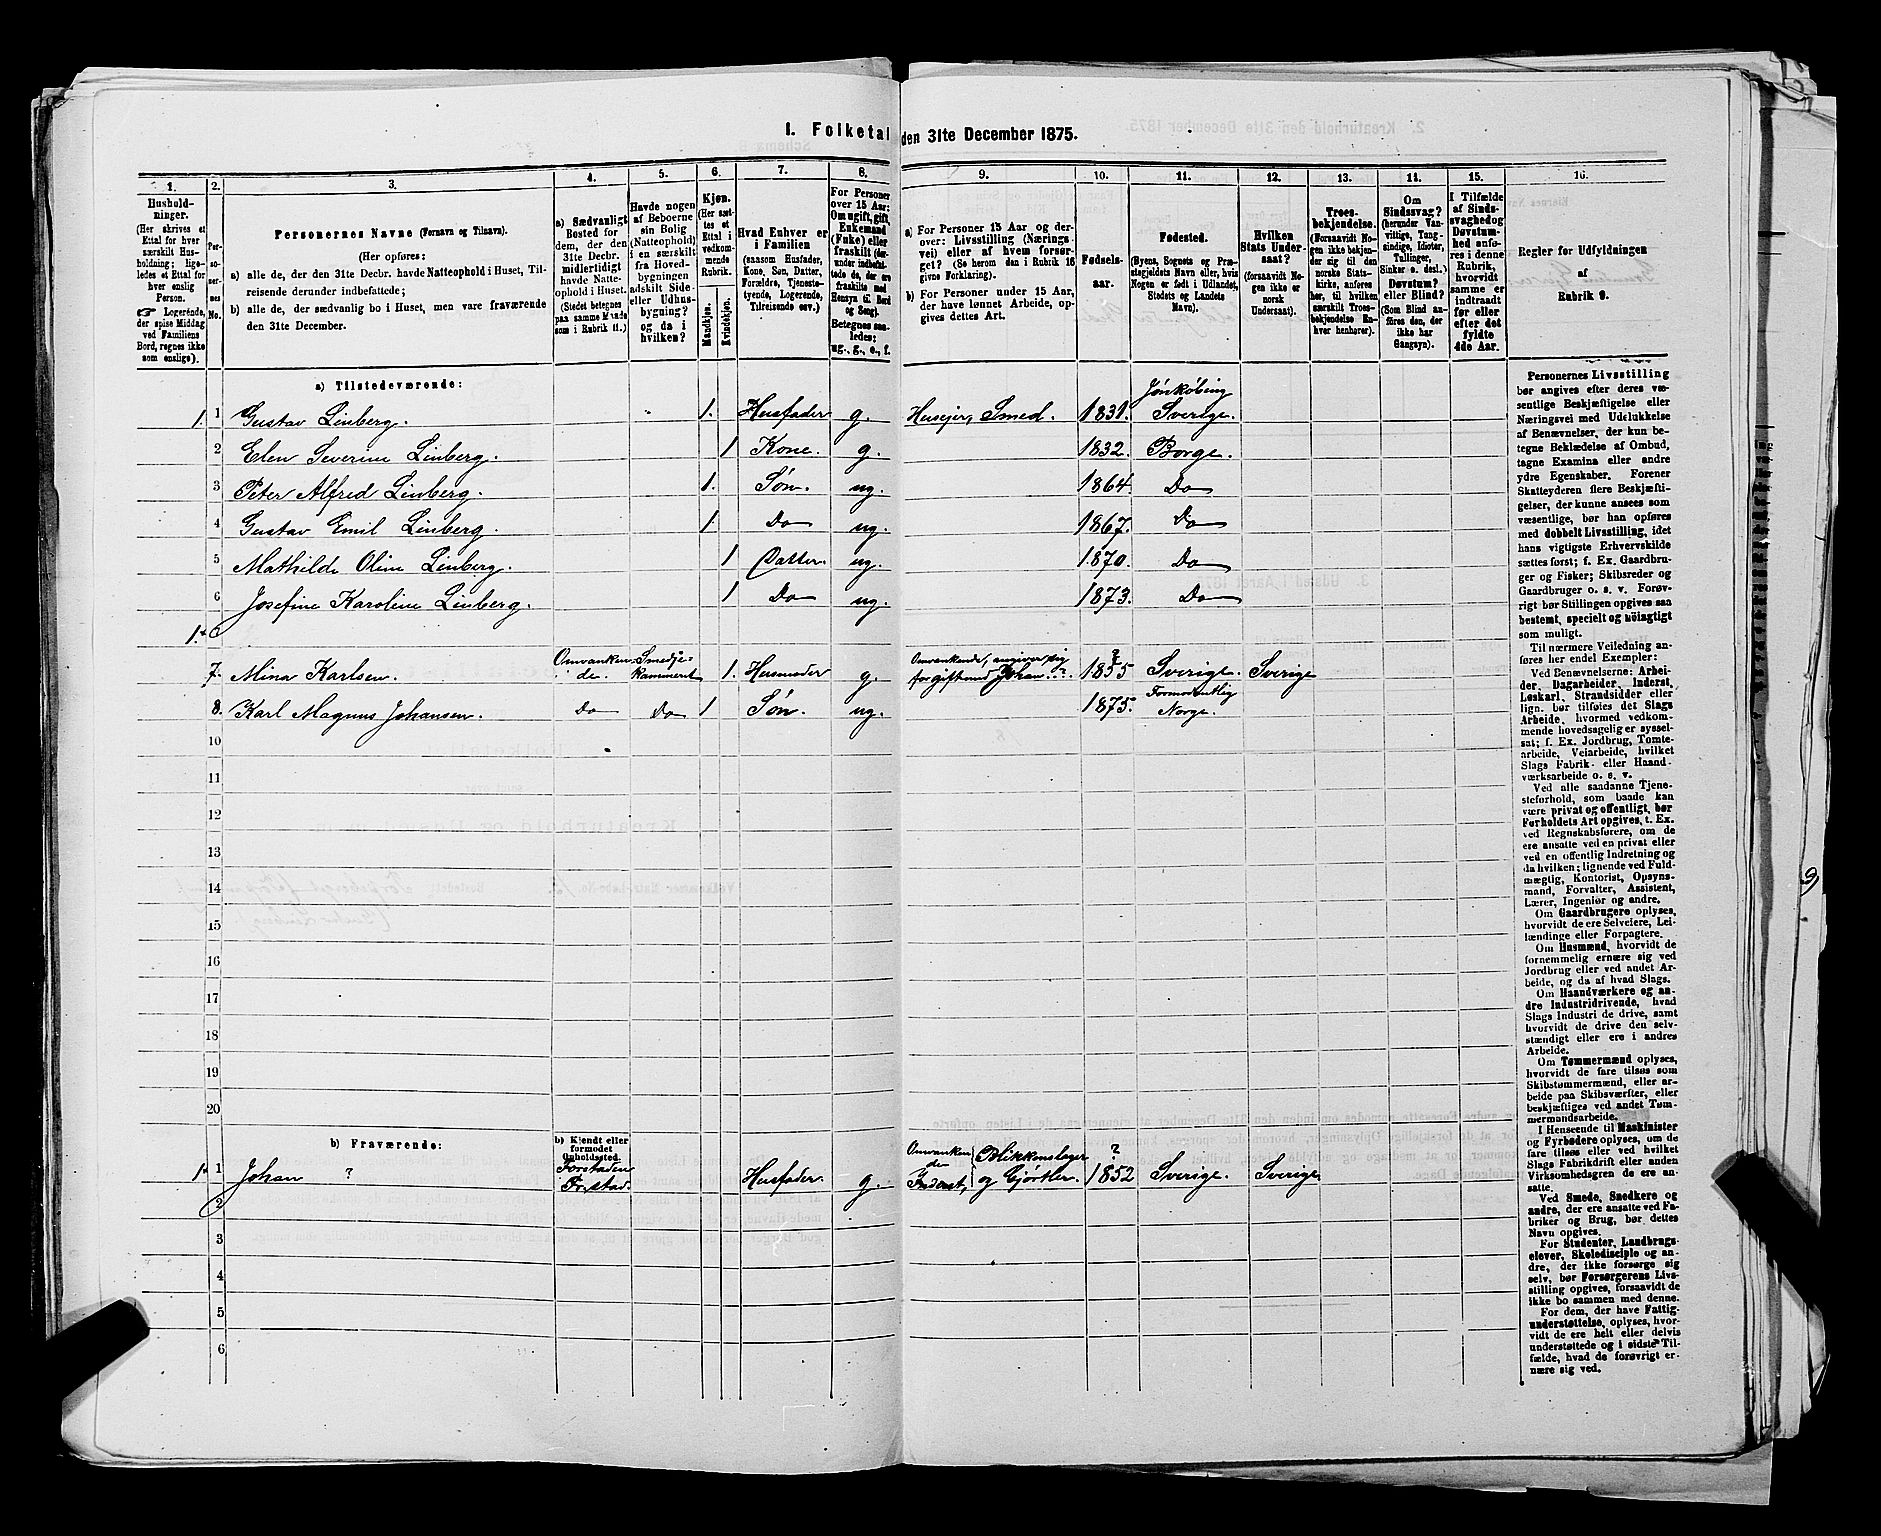 I. Folketal den 31te December 1875.
1. 2. 3. 4. 5. 6. 7. 8. 9. 10. 11. 12. 13. 14. 15. 16.
Husholdninger.
(Her skrives et Ettal for hver særskilt Husholdning; ligeledes et Ettal for hver enslig Person.
Logerende, der spise Middag ved Familiens Bord, regnes ikke som enslige).
Personernes No.
Personernes Navne (Fornavn og Tilnavn).
(Her opføres:
a) alle de, der den 31te Decbr. havde Natteophold i Huset, Tilreisende derunder indbefattede;
b) alle de, der sædvanlig bo i Huset, men vare fraværende den 31te December.
a) Sædvanligt Bosted for dem, der den 31te Decbr. midlertidigt havde Natteophold i Huset. (Stedet betegnes paa samme Maade som i Rubrik 11.)
Havde nogen af Beboerne sin Bolig (Natteophold) i en særskilt fra Hovedbygningen adskilt Side- eller Udhusbygning? og da i hvilken?
Kjøn.
(Her sættes et Ettal i vedkommende Rubrik.
Mandkjøn. Kvindekjøn.
Hvad Enhver er i Familien
(saasom Husfader, Kone, Søn, Datter, Forældre, Tjenestetyende, Logerende, Tilreisende osv.)
For Personer over 15 Aar: Om ugift, gift, Enkemand (Enke) eller fraskilt (derunder indbefattede de, der ere fraskilte med Hensyn til Bord og Seng).
Betegnes saaledes: ug., g., e., f.
a) For Personer 15 Aar og derover: Livsstilling (Næringsvei) eller af hvem forsørget? (Se herom den i Rubrik 16 givne Forklaring).
b) For Personer under 15 Aar, der have lønnet Arbeide, opgives dettes Art.
Fødselsaar.
Fødested.
(Byens, Sognets og Præstegjeldets Navn eller, hvis Nogen er født i Udlandet, Stedets og Landets Navn).
Hvilken Stats Undersaat?
(forsaavidt Nogen ikke er norsk Undersaat).
Troesbekjendelse.
(Forsaavidt Nogen ikke bekjender sig til den norske Statskirke, anføres her, til hvilken særskilt Troesbekjendelse Enhver henhører).
Om Sindssvag? (herunder Vanvittige, Tungsindige, Idioter, Tullinger, Sinker o. desl.) Døvstum? eller Blind? (Som Blind anføres den, der ikke har Gangsyn).
I Tilfælde af Sindssvaghed og Døvstumhed anføres i denne Rubrik, hvorvidt samme er indtraadt før eller efter det fyldte 4de Aar.
Regler for Udfyldningen af Rubrik 9.
a) Tilstedeværende:
1. 1 Gustav Linberg. 1. Husfader g. Husejer, Smed. 1831. Jönköbing Sverige.
2 Elen Severine Linberg. 1 Kone. g. 1832. Borge.
3 Peter Alfred Linberg. 1. Søn. ug. 1864. Do
4 Gustav Emil Linberg. 1 Do ug. 1867. Do
5 Mathilde Oline Linberg. 1 Datter. ug. 1870. Do
6 Josefine Karoline Linberg. 1 Do ug. 1873. Do
1.
7. Mina Karlsen. Omvankende. Smedjekammeret 1. Husmoder g. Omvankende, angiver sig for gift med Johan ? 1855 ? Sverige. Sverige
8. Karl Magnus Johansen. Do Do 1 Søn. ug. 1875. Formodentlig Norge.
10
11
12
13
14
15
16
17
18
19
20
b) Fraværende:
b) Kjendt eller formodet Opholdssted.
1 1 Johan ? Forstaden Fr.stad. Husfader g. Omvankende Inderst, Blikkenslager og Gjørtler. ? 1852 Sverige. Sverige
2
3
4
5
6
Personernes Livsstilling
bør angives efter deres væ-
sentlige Beskjæftigelse eller
Næringsvei med Udelukkelse
af Benævnelser, der kun be-
tegne Beklædelse af Ombud,
tagne Examina eller andre
ydre Egenskaber. Forener
Skatteyderen flere Beskjæfti-
gelser, der kunne ansees som
væsentlige, bør han opføres
med dobbelt Livsstilling, idet
hans vigtigste Erhvervskilde
sættes først; f. Ex. Gaardbru-
ger og Fisker; Skibsreder og
Gaardbruger o. s. v. Forøv-
rigt bør Stillingen opgives saa
bestemt, specielt og nöiagtigt
som muligt.
Til nærmere Veiledning an-
føres her endel Exempler:
Ved Benævnelserne: Arbei-
der, Dagarbeider, Inderst,
Løskarl, Strandsidder eller
lign. bør tilføies det Slags
Arbeide, hvormed vedkom-
mende hovedsagelig er syssel-
sat; f. Ex. Jordbrug, Tomte-
arbeide, Veiarbeide, hvilket
Slags Fabrik- eller Haand-
værksarbeide o. s. v.
Ved alle saadanne Tjene-
steforhold, som baade kan
være privat og offentligt, bør
Forholdets Art opgives, t. Ex.
ved Regnskabsførere, om de
ere ansatte ved en privat eller
ved en offentlig Indretning og
da hvilken; lignende ved Fuld-
mægtig, Kontorist, Opsyns-
mand, Forvalter, Assistent,
Lærer, Ingeniør og andre.
Om Gaardbrugere oplyses,
hvorvidt de ere Selveiere, Lei-
lændinge eller Forpagtere.
Om Husmænd, hvorvidt de
fornemmelig ernære sig ved
Jordbrug eller ved andet Ar-
beide, og da af hvad Slags.
Om Haandværkere og an-
dre Industridrivende, hvad
Slags Industri de drive, samt
hvorvidt de drive den selv-
stændigt eller ere i andres
Arbeide.
Om Tømmermænd oplyses,
hvorvidt de fare tilsøs som
Skibstømmermænd, eller ar-
beide paa Skibsværfter, eller
beskjæftiges ved andet Tøm-
mermandsarbeide.
I Henseende til Maskinister
og Fyrbødere oplyses, om de
fare tilsøs eller ved hvilket
Slags Fabrikdrift eller anden
Virksomhedsgren de ere an-
satte.
Ved Smede, Snedkere og
andre, der ere ansatte ved Fa-
briker og Brug, bør dettes
Navn opgives.
For Studenter, Landbrugs-
elever, Skoledisciple og an-
dre, der ikke forsørge sig
selv, bør Forsørgerens Livs-
stilling opgives, forsaavidt de
ikke bo sammen med denne.
For dem, der have Fattig-
understøttelse, oplyses, hvor-
vidt de ere helt eller delvis
understøttede og i sidste Til-
fælde, hvad de forøvrigt er-
nære sig ved.